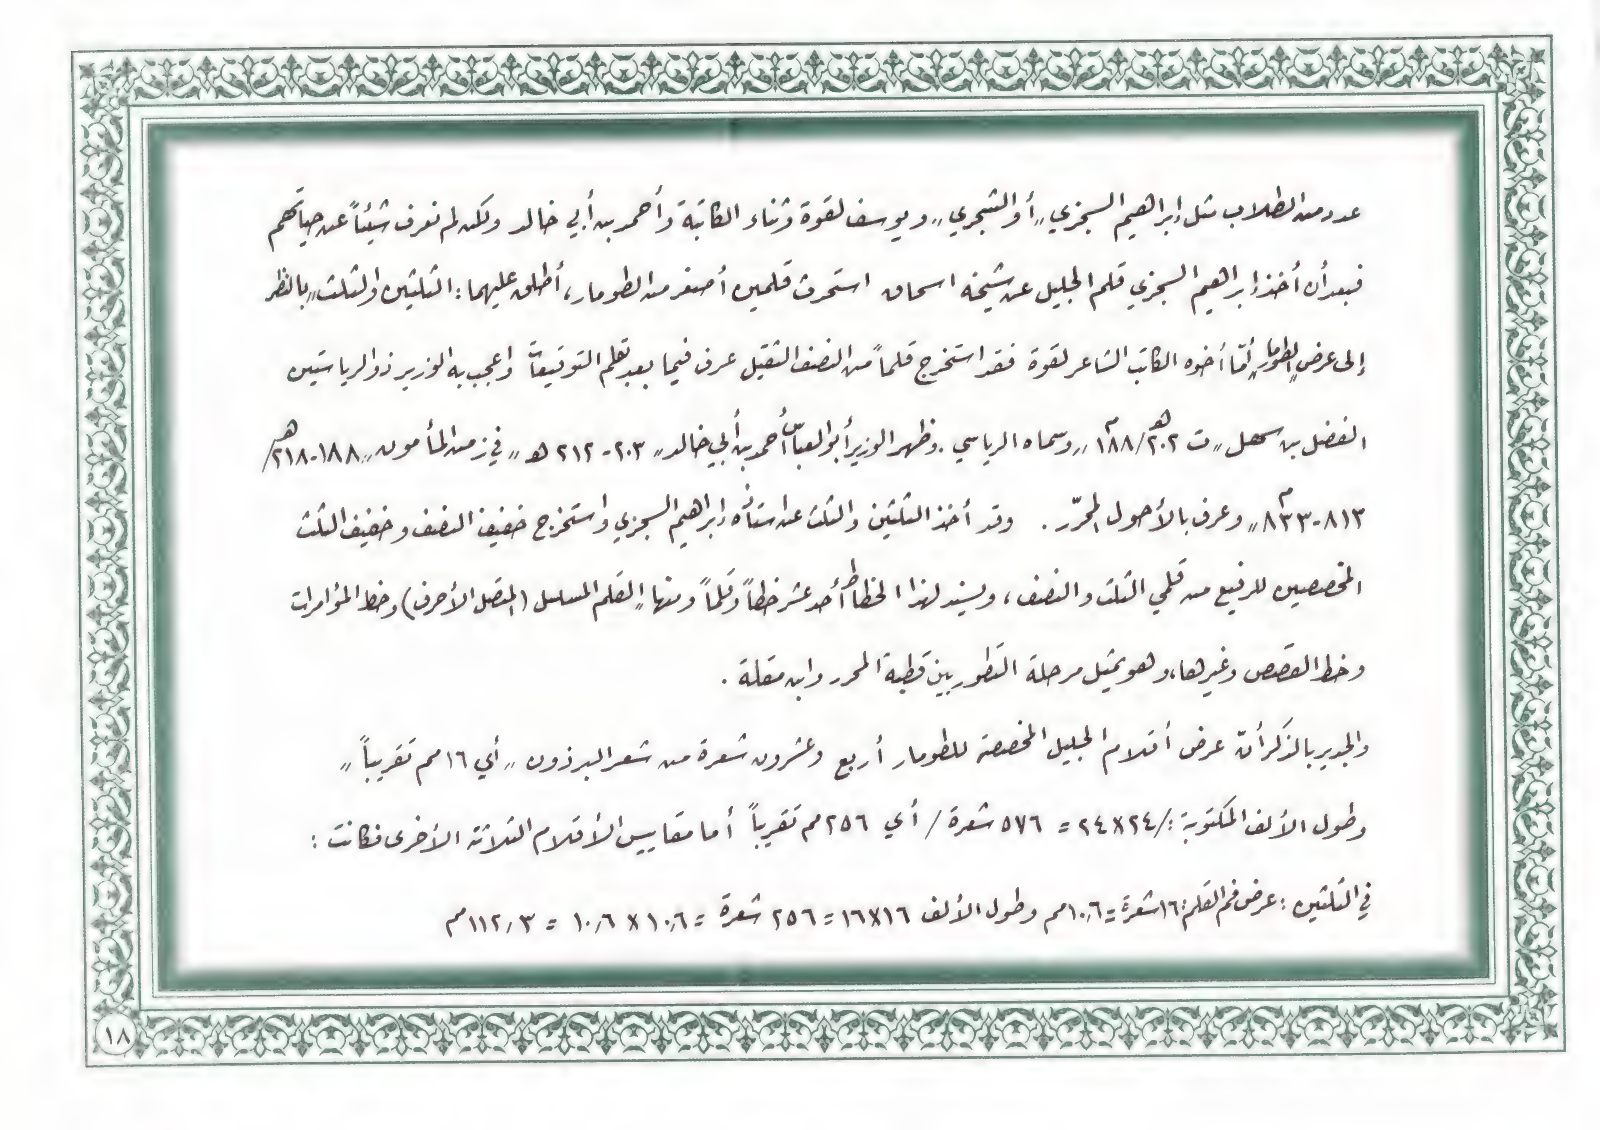 عدد من الطلاب مثل إبراهيم السجزي „أو الشجري„ ويوسف لقوة وثناء الكاتبة وأحمد بن أبي خالد ولكن لم نعرف شيئاً عن حياتهم
فبعد أن أخذ إبراهيم السجزي قلم الجليل عن شيخه اسحاق استحدث قلمين أصغر من الطومار، أطلق عليهما: الثلثين والثلث„ بالنظر
إلى عرض „الطومار„ أمّا أخوه الكاتب الشاعر لقوة فقد استخرج قلماً من النصف الثقيل عرف فيما بعد بقلم التوقيعات وأعجب به الوزير ذو الرياستين
الفضل بن سهل „ت ٢٠٢هـ/٨١٨م„ وسماه الرياسي. وظهر الوزير أبو العباس أحمد بن أبي خالد „٢٠٣-٢١٢ هـ„ في زمن المأمون „١٨٨-٢١٨هـ/
٨١٣-٨٣٣م„ وعرف بالأحول المحرّر. وقد أخذ الثلثين والثلث عن استاذه إبراهيم السجزي واستخرج خفيف النصف وخفيف الثلث
المخصصين للرفيع من قلمي الثلث والنصف، ويسند لهذا الخطاط أحد عشر خطاً وقلماً ومنها „القلم المسلسل (المتصل الأحرف) وخط المؤامرات
وخط القصص وغيرها، وهو يمثل مرحلة التطور بين قطبة المحرر وابن مقلة.
والجدير بالذكر أنّ عرض أقلام الجليل المخصصة للطومار أربع وعشرون شعرة من شعر البرذون „أي ١٦ مم تقريباً„
وطول الألف المكتوبة:/٢٤×٢٤ = ٥٧٦ شعرة / أي ٢٥٦ مم تقريباً أما مقاييس الأقلام الثلاثة الأخرى فكانت:
في الثلثين: عرض فم القلم: ١٦ شعرة = ١٠,٦ مم وطول الألف ١٦×١٦ = ٢٥٦ شعرة = ١٠,٦ × ١٠,٦ = ١١٢,٣ مم
١٨